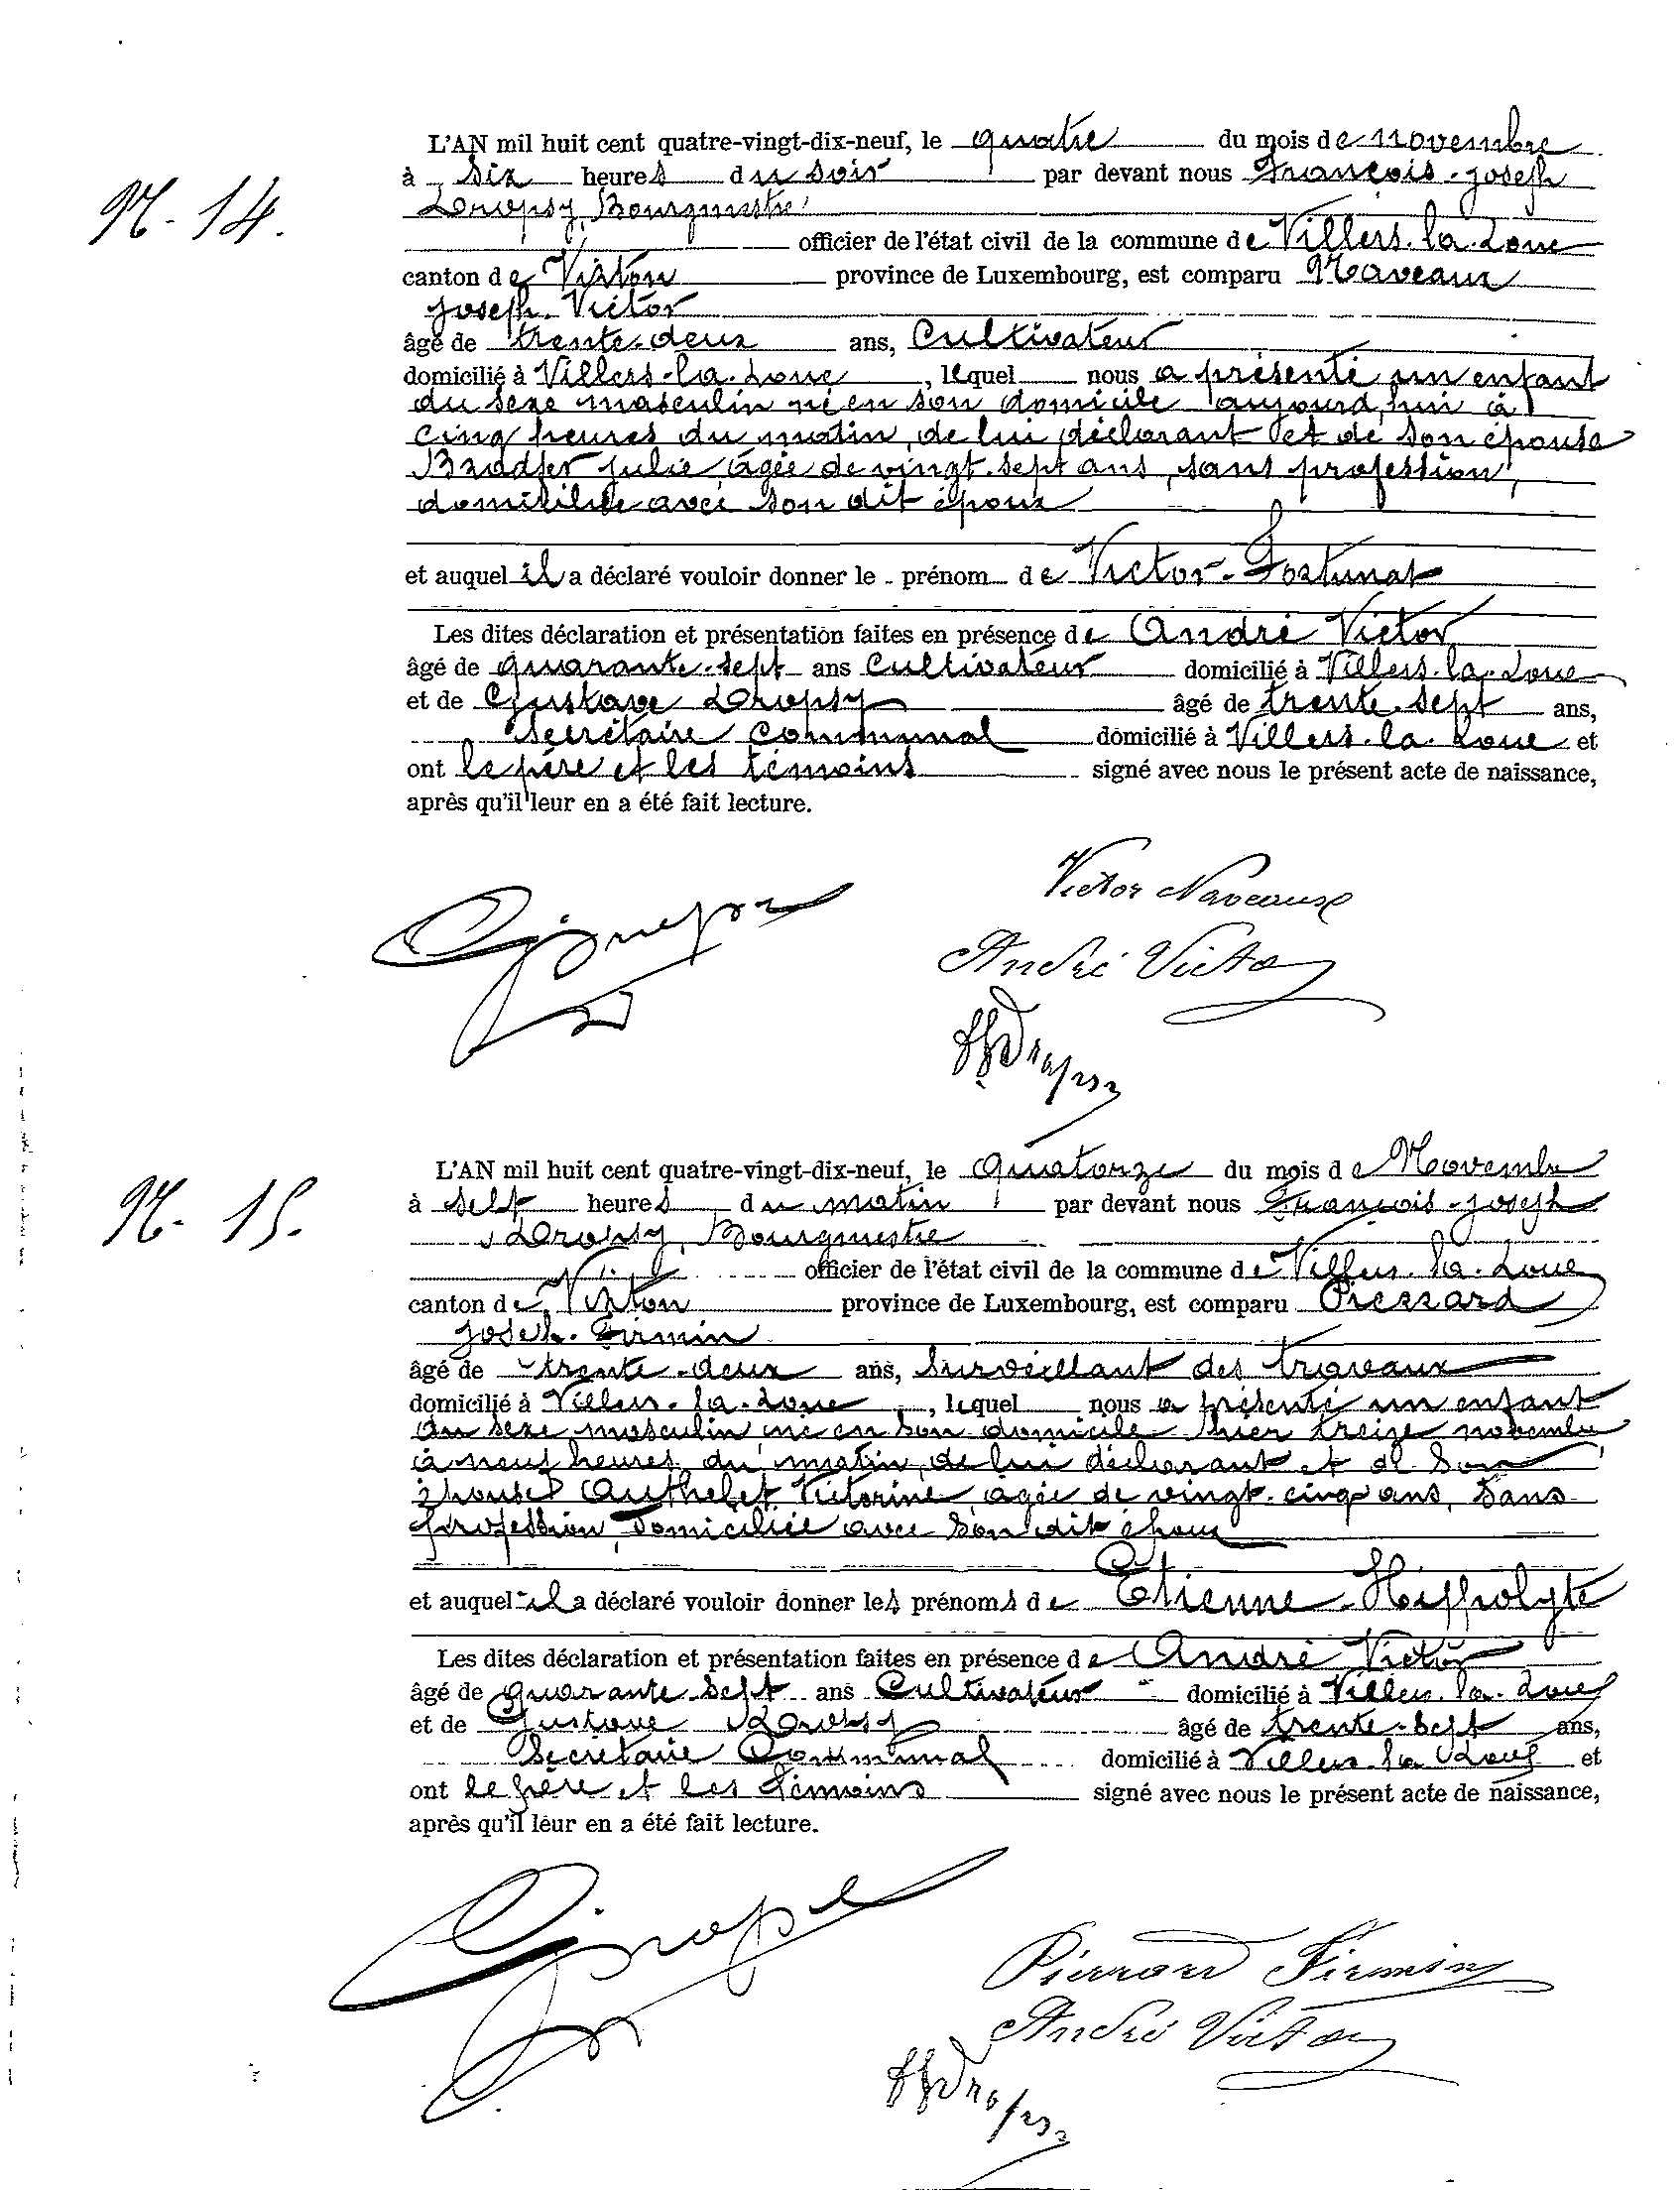 N. 14.
L'AN mil huit cent quatre-vingt-dix-neuf, le quatre du mois de novembre
à six heures du soir par devant nous François-joseph
Dropsy, Bourgmestre
officier de l'état civil de la commune de Villers-la-Loue
canton de Virton province de Luxembourg, est comparu Naveaux
joseph-Victor
âgé de trente-deux ans, Cultivateur
domicilié à Villers-la-Loue, lequel nous a présenté un enfant
du sexe masculin né en son domicile aujourd'hui à
cinq heures du matin, de lui déclarant et de son épouse
julie, âgée de vingt-sept ans, sans profession,
domiciliée avec son dit époux
et auquel il a déclaré vouloir donner le prénom de Victor-Fortunat
Les dites déclaration et présentation faites en présence de André Victor
âgé de quarante-sept ans Cultivateur domicilié à Villers-la-Loue
et de Gustave Dropsy âgé de trente-sept ans,
Secrétaire Communal domicilié à Villers-la-Loue et
ont le père et les témoins signé avec nous le présent acte de naissance,
après qu'il leur en a été fait lecture.
Victor Naveaux
André Victor
N. 15.
L'AN mil huit cent quatre-vingt-dix-neuf, le quatorze du mois de Novembre
à sept heures du matin par devant nous François-joseph
Dropsy, Bourgmestre
officier de l'état civil de la commune de Villers-la-Loue
canton de Virton province de Luxembourg, est comparu Pierrard
joseph-Firmin
âgé de trente-deux ans, Surveillant des travaux
domicilié à Villers-la-Loue, lequel nous a présenté un enfant
du sexe masculin, né en son domicile hier treize novembre
à neuf heures du matin, de lui déclarant et de son
épouse Authelet Victorine, âgée de vingt-cinq ans, sans
profession, domiciliée avec son dit époux
et auquel il a déclaré vouloir donner les prénoms de Etienne-Hippolyte
Les dites déclaration et présentation faites en présence de André Victor
âgé de quarante-sept ans Cultivateur domicilié à Villers-la-Loue
et de Gustave Dropsy âgé de trente-sept ans,
Secrétaire Communal domicilié à Villers-la-Loue et
ont le père et les témoins signé avec nous le présent acte de naissance,
après qu'il leur en a été fait lecture.
Pierrard Firmin
André Victor